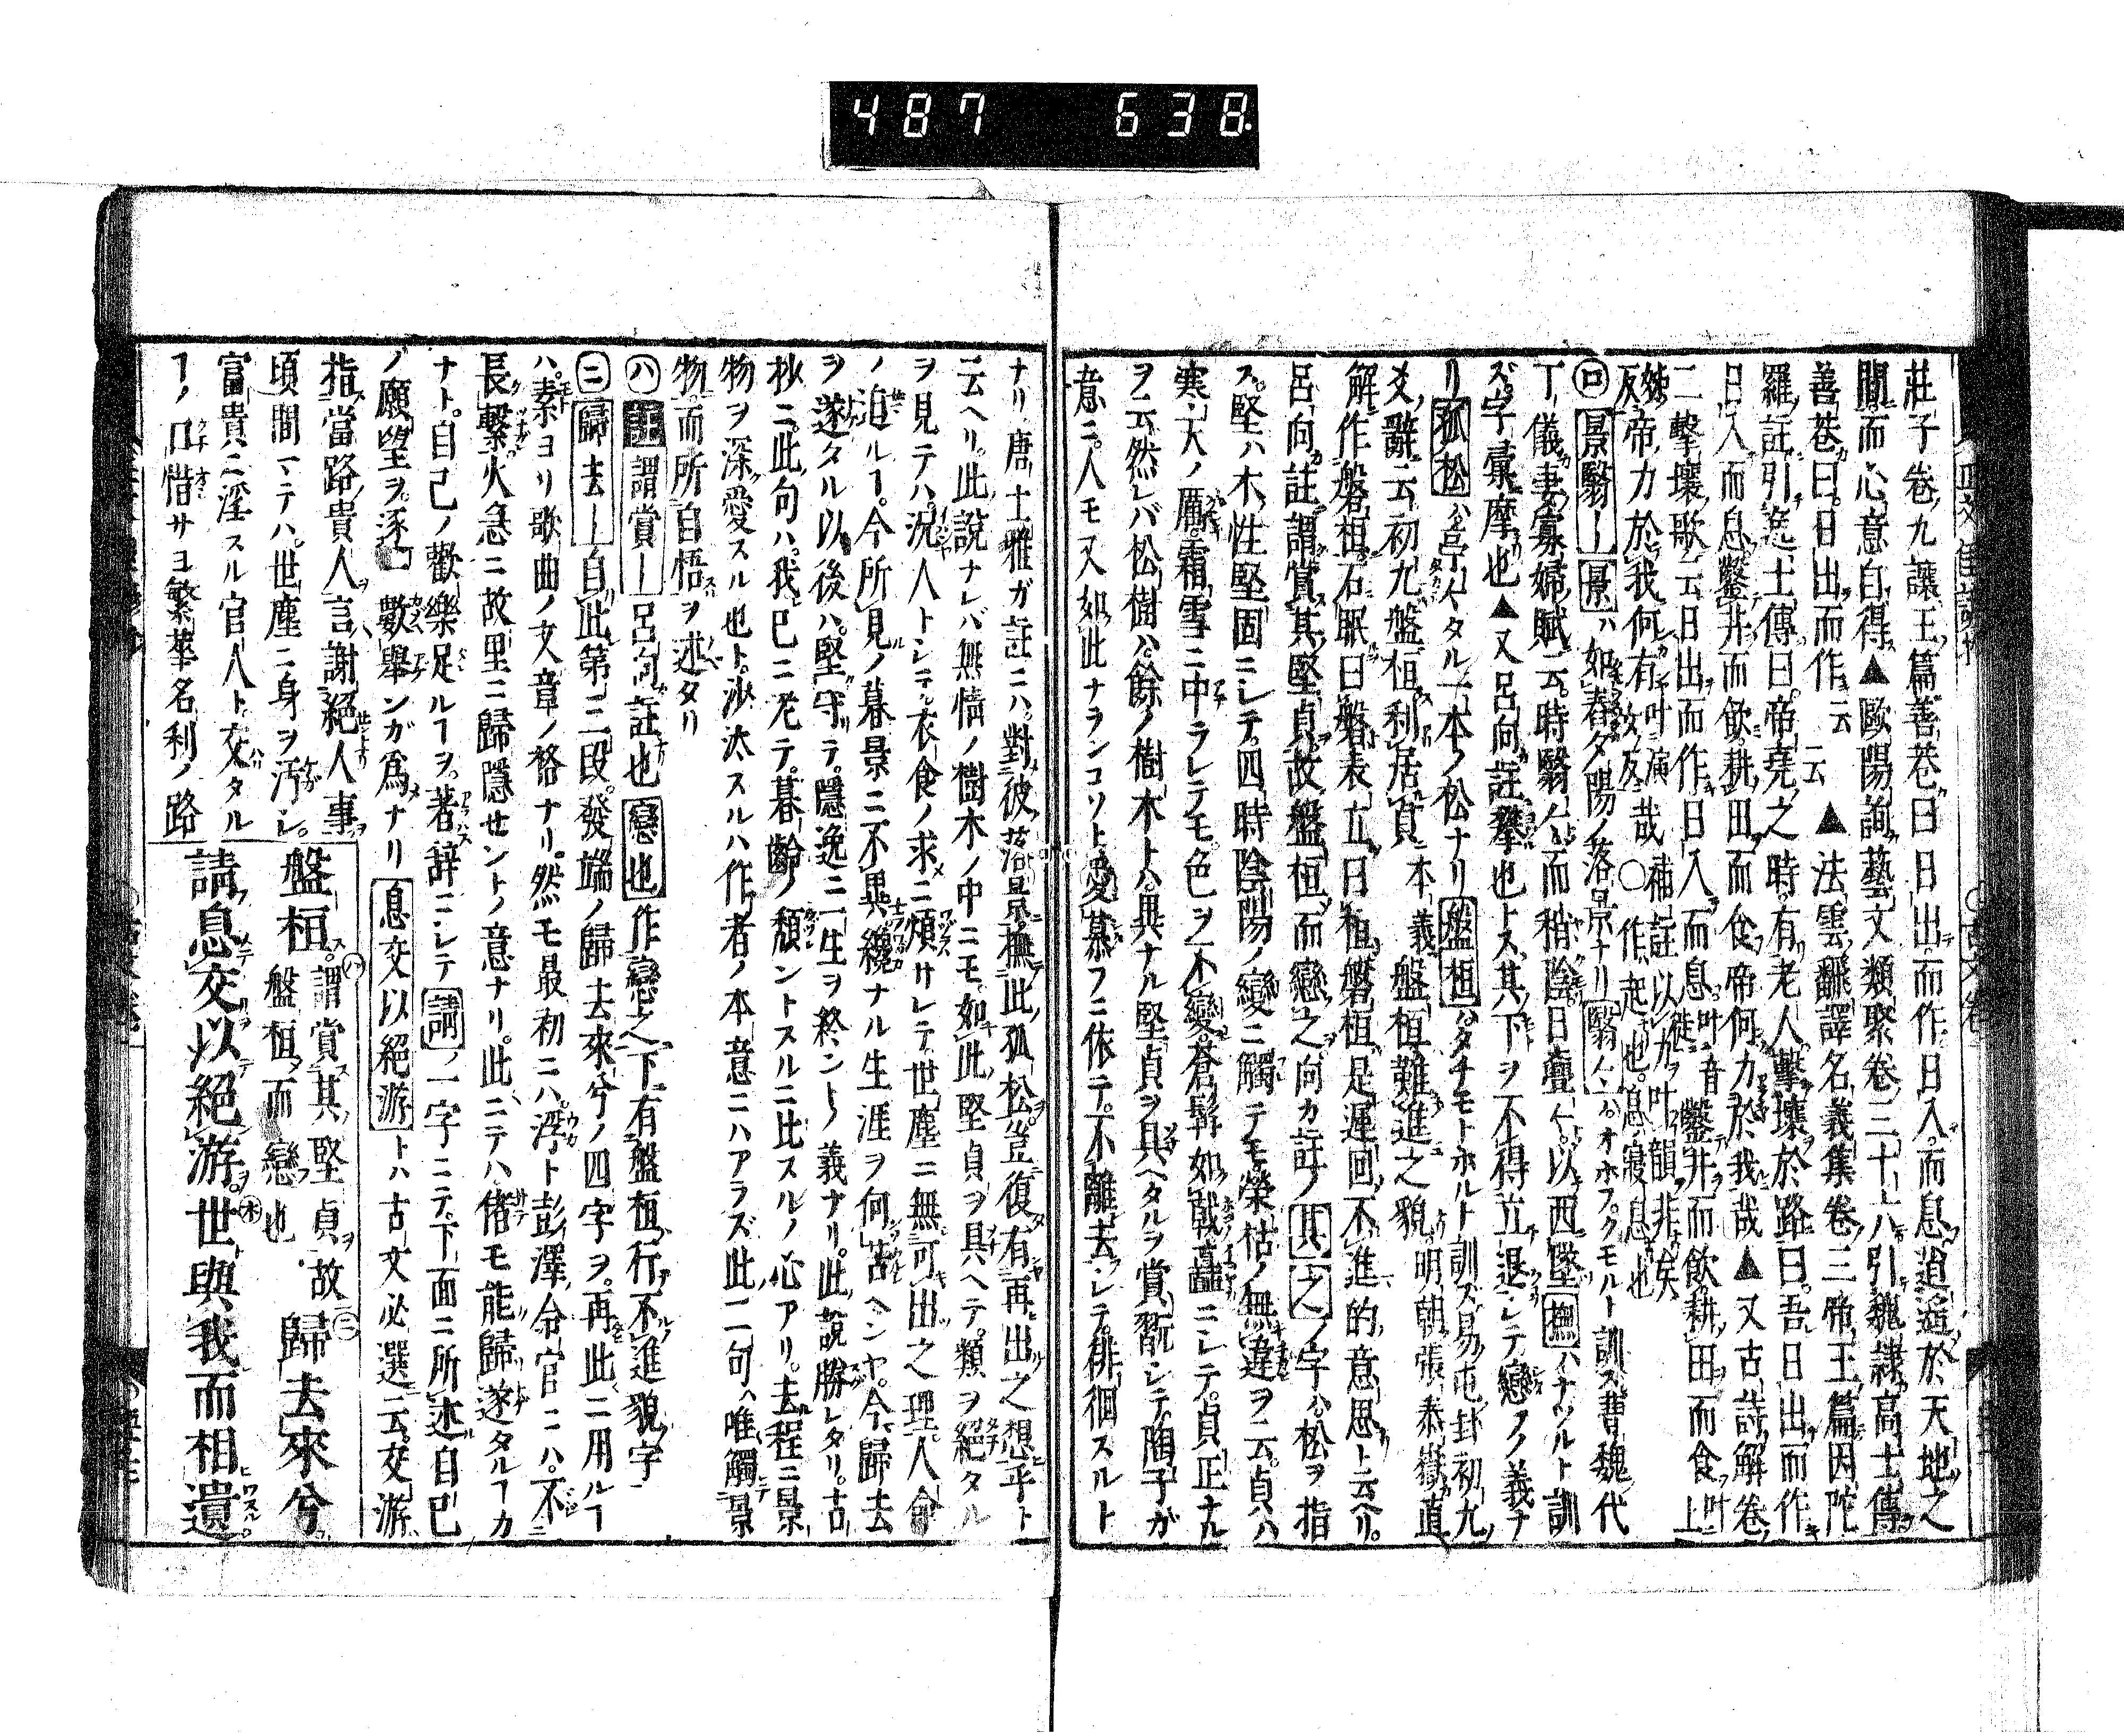 487 638
莊子卷九讓王篇善卷曰日出而作日入而息逍遥於天地之
間而心意自得▲歐陽詢藝文類聚卷三十六引魏隷高士傳
善卷曰日出而作云云▲法雲飜譯名義集卷三帝王篇因陀
羅註引逸士傳曰帝堯之時有老人擊壤於路曰吾日出而作
日入而息鑿井而飮耕田而食帝何力於我哉▲又古詩解卷
二擊壤歌云日出而作日入而息鑿井而飮耕田而食
帝力於我何有哉○作起也息寢息也
ロ景翳ー景ハ如春夕陽ノ落景ナリ翳々ハオホフクモルト訓ス曹魏代
丁儀妻寡婦賦云時翳々而稍陰日亹々以西墜撫ハナヅルト訓
ズ字彙摩也▲又呂向註攀也トス其下ヲ不得立退シテ戀フノ義ナ
リ孤松ハ亭々タル一本ノ松ナリ盤桓ハタチモトホルト訓ズ易屯卦初九
爻辭云初九盤桓利居貞本義盤桓難進之貌明朝張泰嶽直
解作磐桓石眠曰磐表立曰桓磐桓是遲回不進的意思ト云ヘリ
呂向註謂賞其堅貞故盤桓而戀之向カ註ノ其之ノ字ハ松ヲ指
ス堅ハ木性堅固ニシテ四時陰陽ノ變ニ觸テモ榮枯ノ無違ヲ云貞ハ
寒天ノ厲霜雪ニ中ラレテモ色ヲ不變蒼髯如戟矗ニシテ貞正ナル
ヲ云然レバ松樹ハ餘ノ樹木トハ異ナル堅貞ヲ具ヘタルヲ賞翫シテ陶子ガ
意ニ人モ又如此ナランコソト愛慕フニ依テ不離去シテ徘徊スルト
ナリ唐士雅ガ註ニハ對彼落景撫此孤松豈復有再出之想乎ト
云ヘリ此說ナレバ無情ノ樹木ノ中ニモ如此堅貞ヲ具ヘテ類ヲ絕タル
ヲ見テハ況人トシテ衣食ノ求ニ煩サレテ世塵ニ無可出之理人命
ノ迫ルヿ今所見ノ暮景ニ不異纔ナル生涯ヲ何苦ヘンヤ今歸去
ヲ遂タル以後ハ堅守テ隱逸ニ一生ヲ終ントノ義ナリ此說勝レタリ古
抄ニ此句ハ我已ニ老テ暮齡ノ頽ントスルニ比スルノ心アリ去程ニ景
物ヲ深愛スル也ト沙汰スルハ作者ノ本意ニハアラズ此二句ハ唯觸景
物而所自悟ヲ述タリ
ハ註謂賞ー呂向註也戀也作戀之下有盤桓行不進貌字
ニ歸去ー自此第三段發端ノ歸去來兮ノ四字ヲ再此ニ用ルヿ
ハ素ヨリ歌曲ノ文章ノ格ナリ然モ最初ニハ浮ト彭澤令官ニハ不
長繫火急ニ故里ニ歸隱セントノ意ナリ此ニテハ偖モ能歸遂タルヿカ
ナト自己ノ歡樂足ルヿヲ著辞ニシテ請ノ一字ニテ下面ニ所述自己
ノ願望ヲ逐一數舉ンガ爲ナリ息交以絕游トハ古文必選云交游
指當路貴人言謝絕人事
頃間マテハ世塵ニ身ヲ汚シ
富貴ニ淫スル官人ト交タル
ヿノ口惜サヨ繁華名利ノ路
盤桓謂賞其堅貞故盤桓而戀也歸去來兮
請息交以絕游世與我而相遺